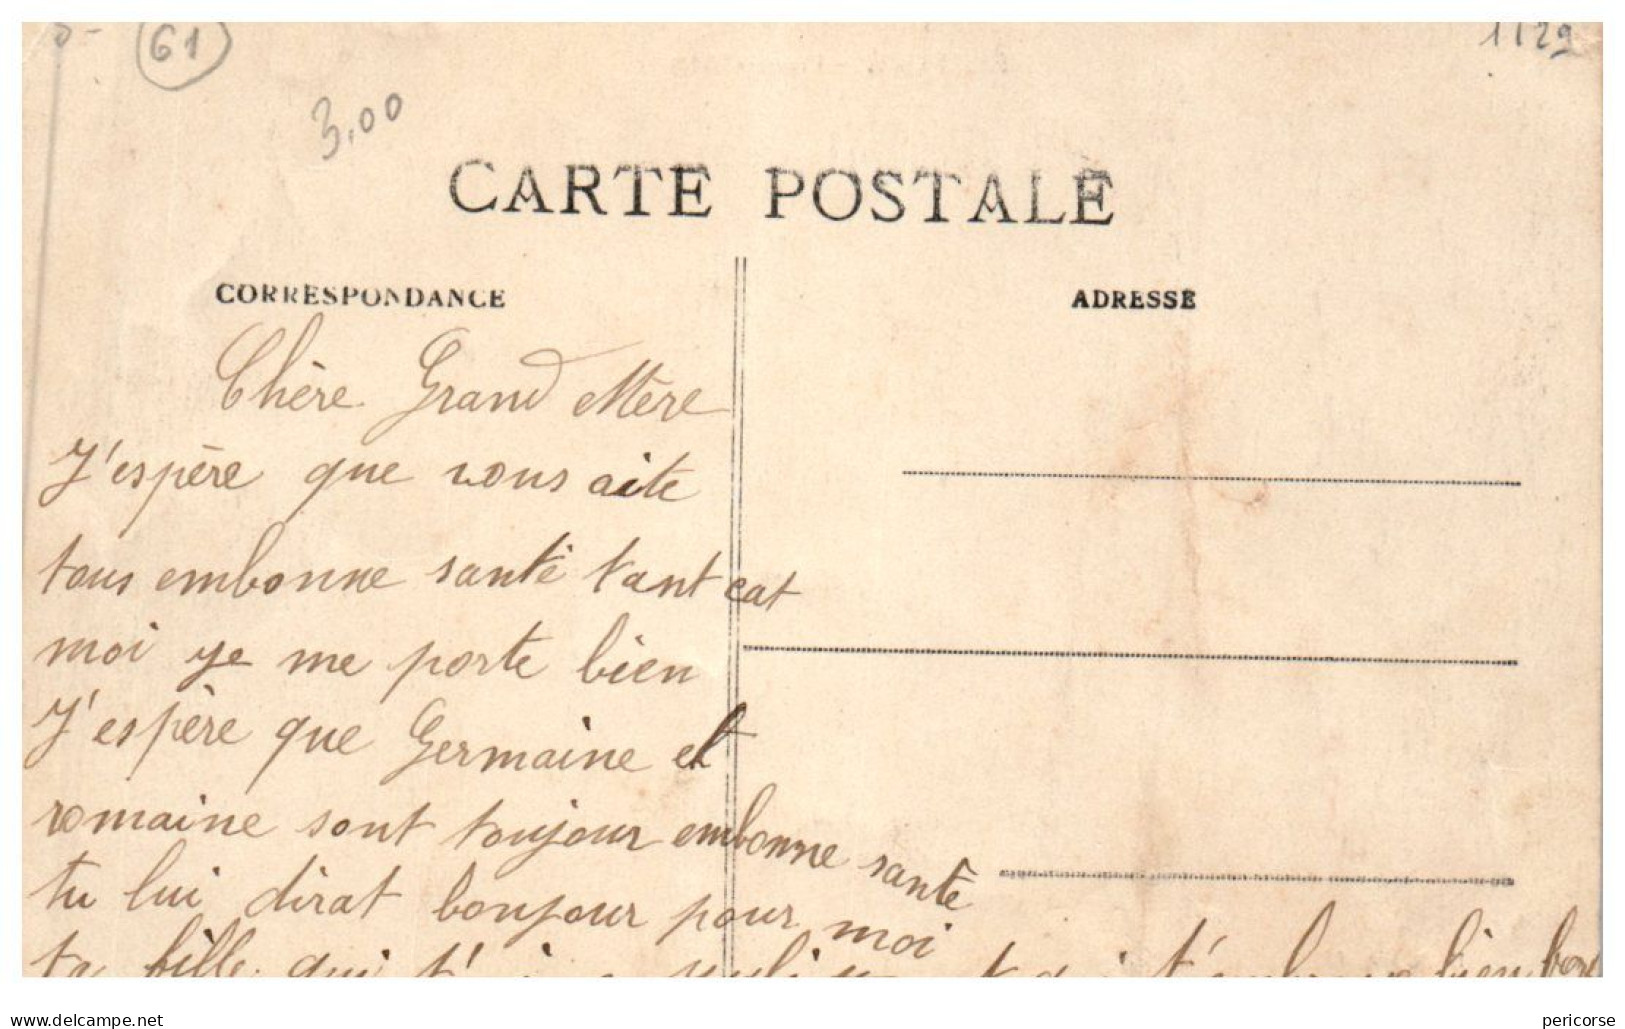 61
1129
3,00
CARTE POSTALE
CORRESPONDANCE
ADRESSE
Chère Grand Mère
J'espère que vous aite
tous embonne santé tant cat
moi je me porte bien
J'espère que Germaine et
romaine sont toujour embonne santé
tu lui dirat bonjour pour moi
ta fille qui t'embrasse bien
Delcampe.net
pericorse